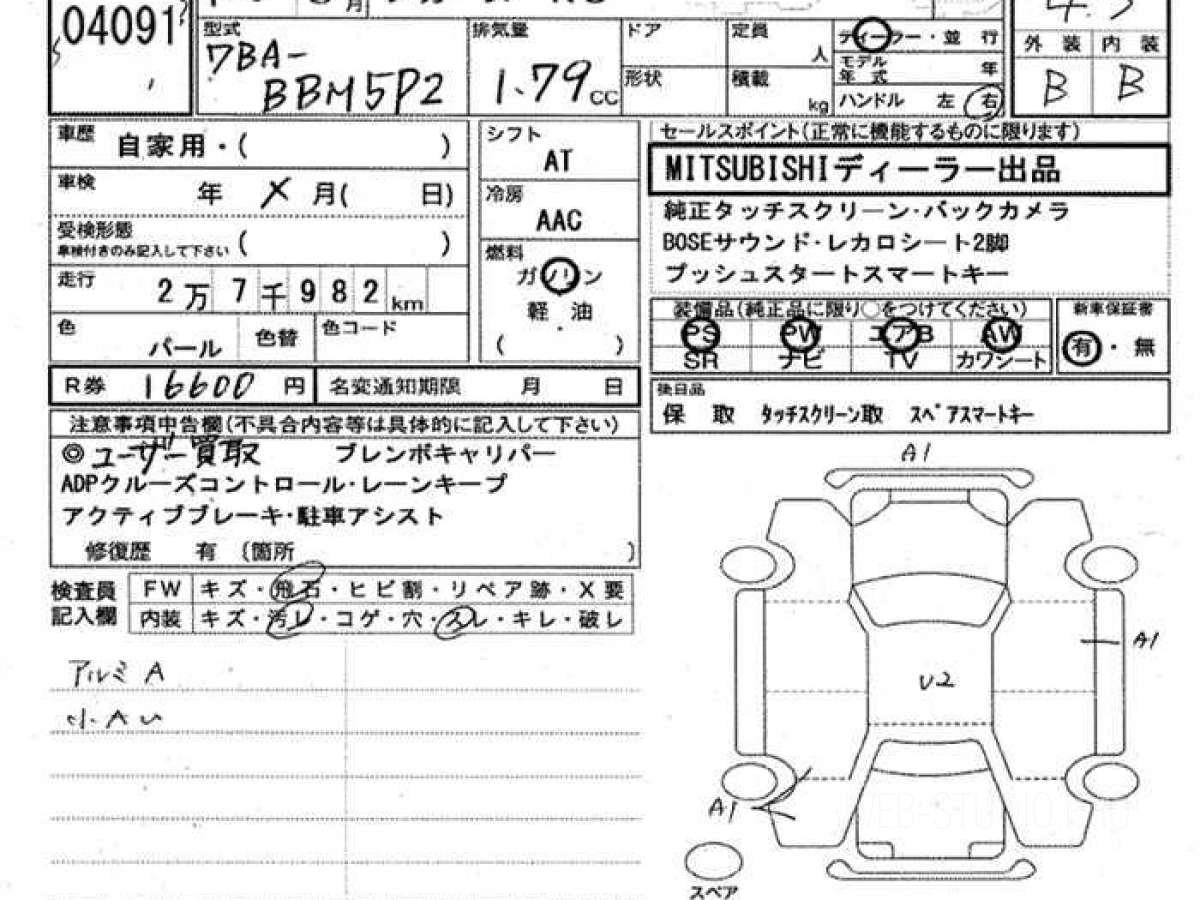 04091
型式
7BA-
BBM5P2
排気量
1.79 CC
ドア
形状
定員
人
積載
kg
ディーラー・並 行
モデル
年 式 年
ハンドル 左 右
4.5
外 装 内 装
B B
車歴 自家用・( )
車検 年 X 月( 日)
受検形態
車検付きのみ記入して下さい ( )
走行 2万7千982km
色 パール 色替 色コード
シフト
AT
冷房
AAC
燃料
ガソリン
軽 油
・
( )
セールスポイント(正常に機能するものに限ります)
MITSUBISHIディーラー出品
純正タッチスクリーン・バックカメラ
BOSEサウンド・レカロシート2脚
プッシュスタートスマートキー
装備品(純正品に限り○をつけてください)
PS PW エアB AW
SR ナビ TV カワシート
新車保証書
有・無
R券 16600 円 名変通知期限 月 日
後日品
保 取 タッチスクリーン取 スペアスマートキー
注意事項申告欄(不具合内容等は具体的に記入して下さい)
◎ユーザー買取 ブレンボキャリパー
ADPクルーズコントロール・レーンキープ
アクティブブレーキ・駐車アシスト
修復歴 有 (箇所 )
検査員
記入欄
FW キズ・飛石・ヒビ割・リペア跡・X要
内装 キズ・汚レ・コゲ・穴・スレ・キレ・破レ
アルミ A
小AU
A1
A1
U2
A1
スペア
WEB-STUDIO.PRO